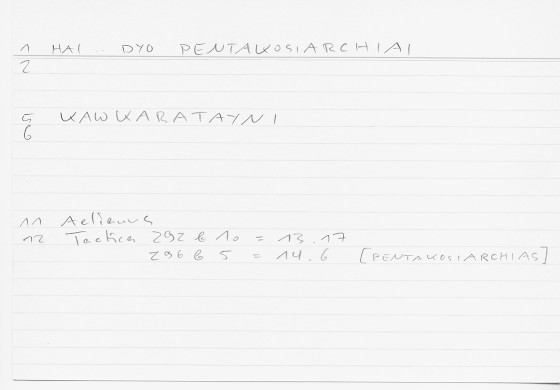 1 HAI .. DYO PENTAKOSIARCHIAI
2
5 KAWKARATAYNI
6
11 Aelianus
12 Tactica 292 b 10 = 13.17
296 b 5 = 14.6 [PENTAKOSIARCHIAS]